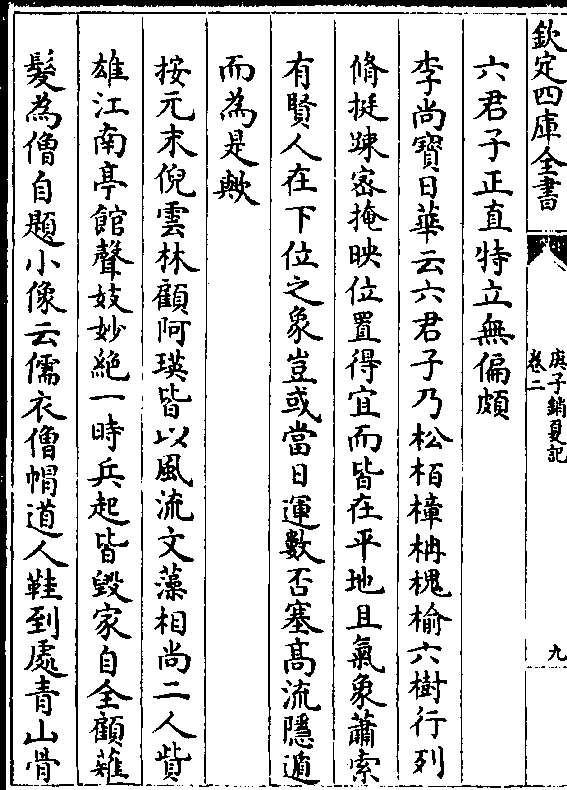 欽定四庫全書
庚子銷夏記
卷二
九
六君子正直特立無偏頗
李尚寶日華云六君子乃松栢樟柟槐榆六樹行列
脩挺踈宻掩映位置得宜而皆在平地且氣象蕭索
有賢人在下位之象豈或當日運數否塞髙流隱遁
而為是歟
按元末倪雲林顧阿瑛皆以風流文藻相尚二人貲
雄江南亭館聲妓妙絶一時兵起皆毀家自全顧薙
髮為僧自題小像云儒衣僧帽道人鞋到處青山骨